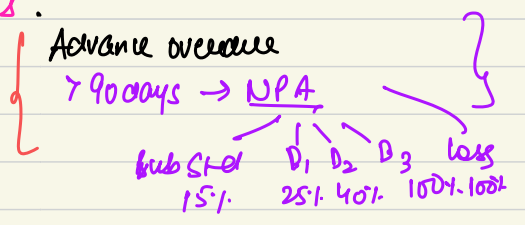 Advance overdue
> 90 days → NPA
Sub Std D1 D2 D3 Loss
15% 25% 40% 100% 100%